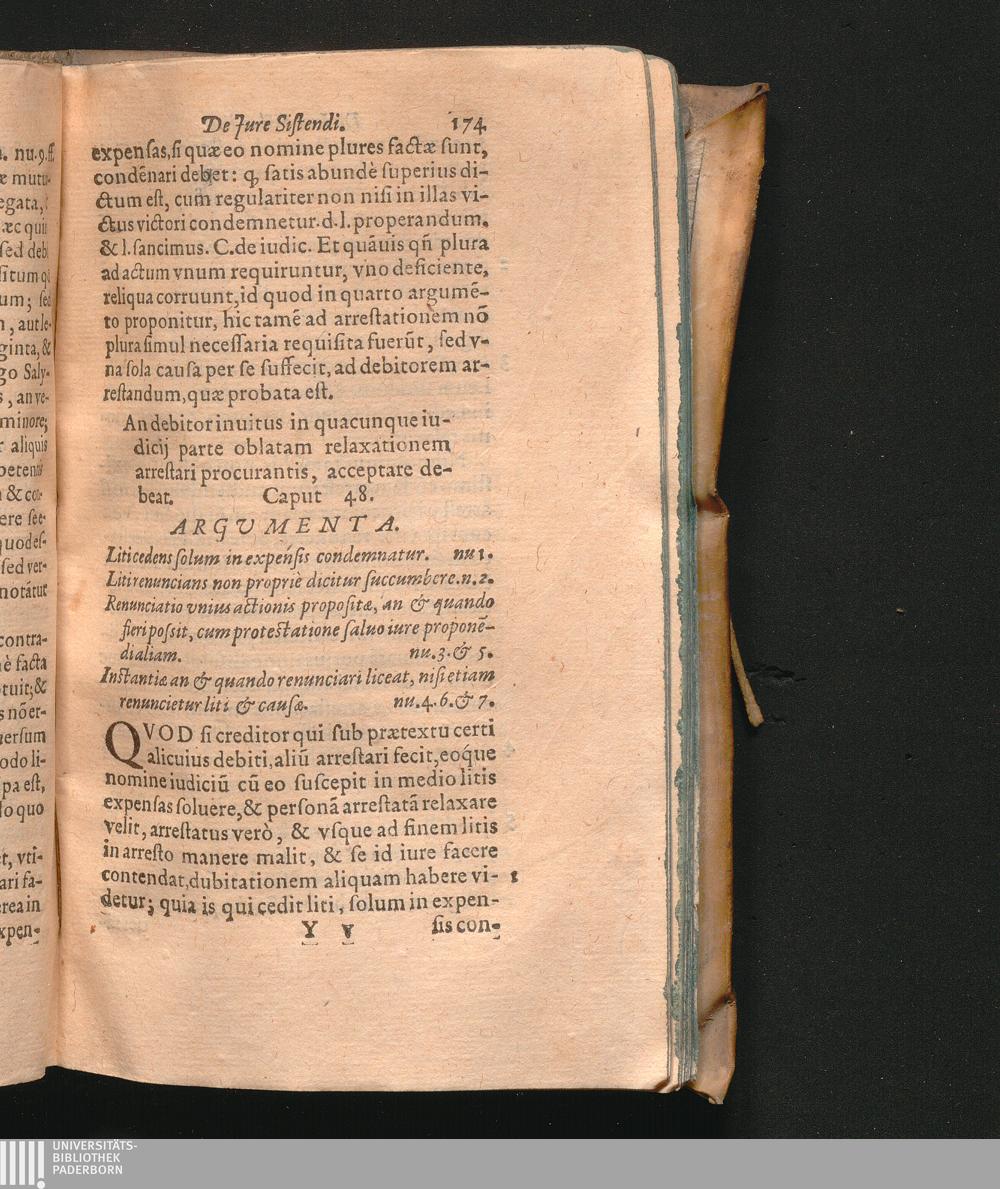 De Jure Sistendi. 174.
expensas, si quæ eo nomine plures factæ sunt,
condēnari debet: q, satis abundè superius di-
ctum est, cum regulariter non nisi in illas vi-
ctus victori condemnetur. d. l. properandum.
& l. sancimus. C. de iudic. Et quāuis qñ plura
ad actum vnum requiruntur, vno deficiente,
reliqua corruunt, id quod in quarto argumē-
to proponitur, hic tamē ad arrestationem nō
plura simul necessaria requisita fuerūt, sed v-
na sola causa per se suffecit, ad debitorem ar-
restandum, quæ probata est.
An debitor inuitus in quacunque iu-
dicij parte oblatam relaxationem
arrestari procurantis, acceptare de-
beat. Caput 48.
ARGVMENTA.
Liti cedens solum in expēsis condemnatur. nu 1.
Liti renuncians non propriè dicitur succumbere. n. 2.
Renunciatio vnius actionis propositæ, an & quando
fieri possit, cum protestatione saluo iure proponē-
di aliam. nu. 3. & 5.
Instantiæ an & quando renunciari liceat, nisi etiam
renuncietur liti & causæ. nu. 4. 6. & 7.
QVOD si creditor qui sub prætextu certi
alicuius debiti, aliū arrestari fecit, eoq́ue
nomine iudiciū cū eo suscepit in medio litis
expensas soluere, & personā arrestatā relaxare
velit, arrestatus verò, & vsque ad finem litis
in arresto manere malit, & se id iure facere
contendat, dubitationem aliquam habere vi- 1
detur; quia is qui cedit liti, solum in expen-
Y v sis con-
nu. 9. ff
mutu-
egata,
æc qui
sed deb
situm q
um; sed
, aut le-
ginta, &
go Saly-
, an ve-
minore;
aliquis
petent
& con-
ere see-
quodes-
sed ver-
notātut
contra-
è facta
tuit; &
s nō er-
uersum
odo li-
pa est,
lo quo
t, vti-
ari fa-
erea in
xpen-
UNIVERSITÄTS-
BIBLIOTHEK
PADERBORN